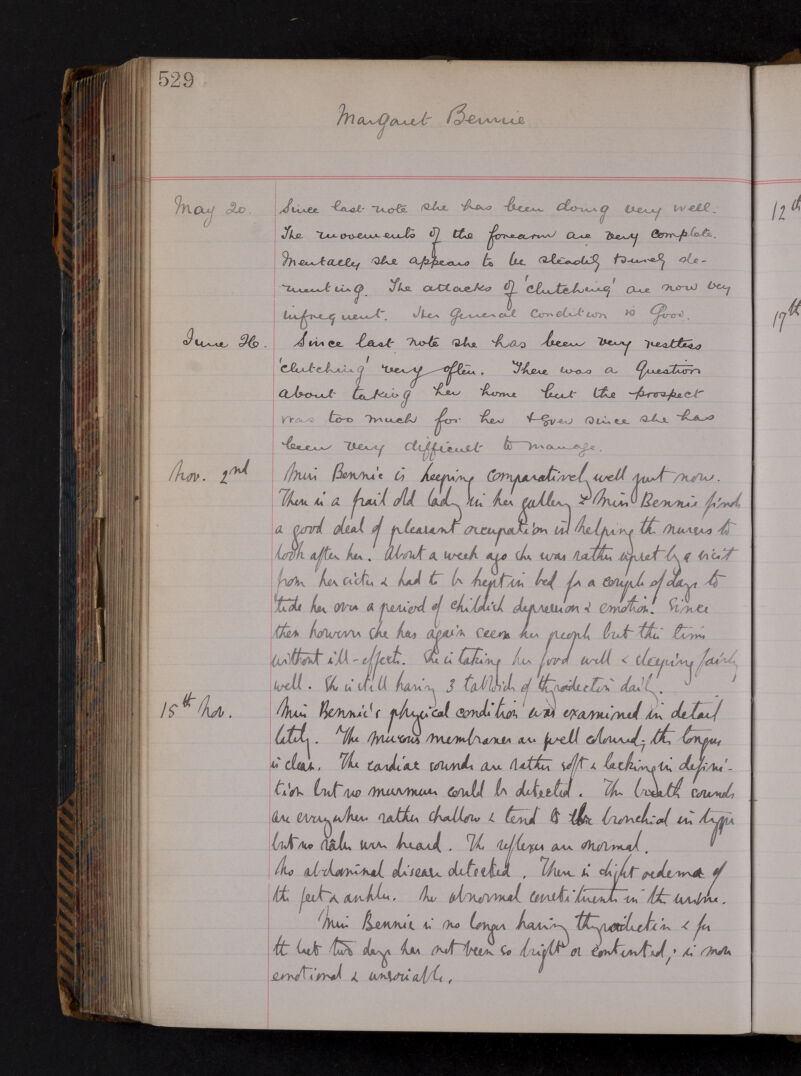 529
Margaret Bennie
May 20. Since last note she has been doing very well.
The movements of the forearm are very complete.
Mentally she appears to be steadily & surely de-
menting. The attacks of 'clutching' are now very
infrequent. Her general condition is Good.
June 26. Since last note she has been very restless
'clutching' very often. There was a Question
about taking her home but the prospect
was too much for her & ever since she has
been very difficult to manage.
Nov. 2nd Miss Bennie is keeping comparatively well just now.
There is a frail old lady in her gallery & Miss Bennie finds
a good deal of pleasant occupation in helping the nurses to
look after her. About a week ago she was rather upset by a visit
from her sister & had to be kept in bed for a couple of days to
tide her over a period of childish depression & emotion. Since
then however she has again seen her people but this time
without ill-effects. She is taking her food well & sleeping fairly
well. She is still having 3 tabloids of thyroidectin daily.
15th Nov. Miss Bennie's physical condition was examined in detail
lately. The mucous membranes are well coloured; the tongue
is clean. The cardiac sounds are rather soft & lacking in defini-
tion but no murmurs could be detected. The breath sounds
are everywhere rather shallow & tend to bronchial in type
but no râles were heard. The reflexes are normal.
No abdominal disease detected. There is slight oedema of
the feet & ankles. No abnormal constituents in the urine.
Miss Bennie is no longer having thyroidectin & for
the last two days has not been so bright or contented; is more
emotional & unsociable.
12th
17th